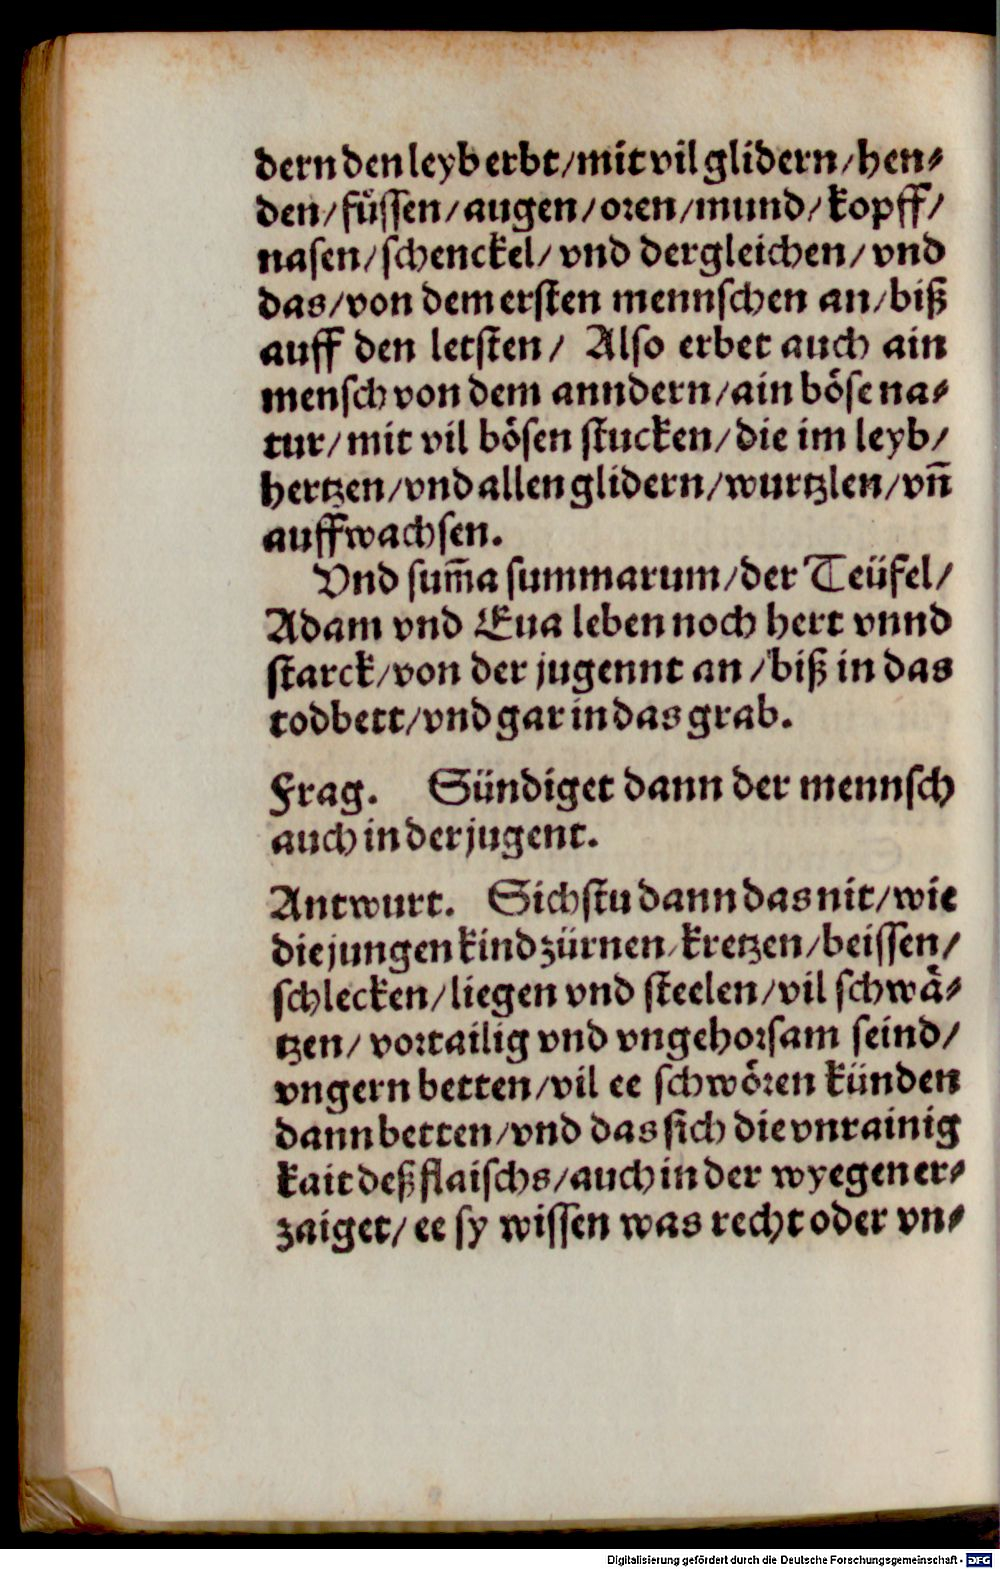 dern den leyb erbt/mit vil glidern/hen⸗
den/fuͤssen/augen/oren/mund/kopff/
nasen/schenckel/ vnd dergleichen/ vnd
das/von dem ersten mennschen an/biß
auff den letsten/ Also erbet auch ain
mensch von dem anndern/ain boͤse na⸗
tur/mit vil boͤsen stucken/die im leyb/
hertzen/vnd allen glidern/wurtzlen/vn̄
auffwachsen.
Vnd sum̄a summarum/der Teüfel/
Adam vnd Eua leben noch hert vnnd
starck/von der jugennt an /biß in das
todbett/vnd gar in das grab.
Frag. Sündiget dann der mennsch
auch in der jugent.
Antwurt. Sichstu dann das nit/wie
die jungen kind zürnen/kretzen/beissen/
schlecken/liegen vnd steelen/vil schwaͤ⸗
tzen/ vortailig vnd vngehorsam seind/
vngern betten/vil ee schwoͤren künden
dann betten/vnd das sich die vnrainig
kait deß flaischs/auch in der wyegen er⸗
zaiget/ ee sy wissen was recht oder vn⸗
Digitalisierung gefördert durch die Deutsche Forschungsgemeinschaft - DFG